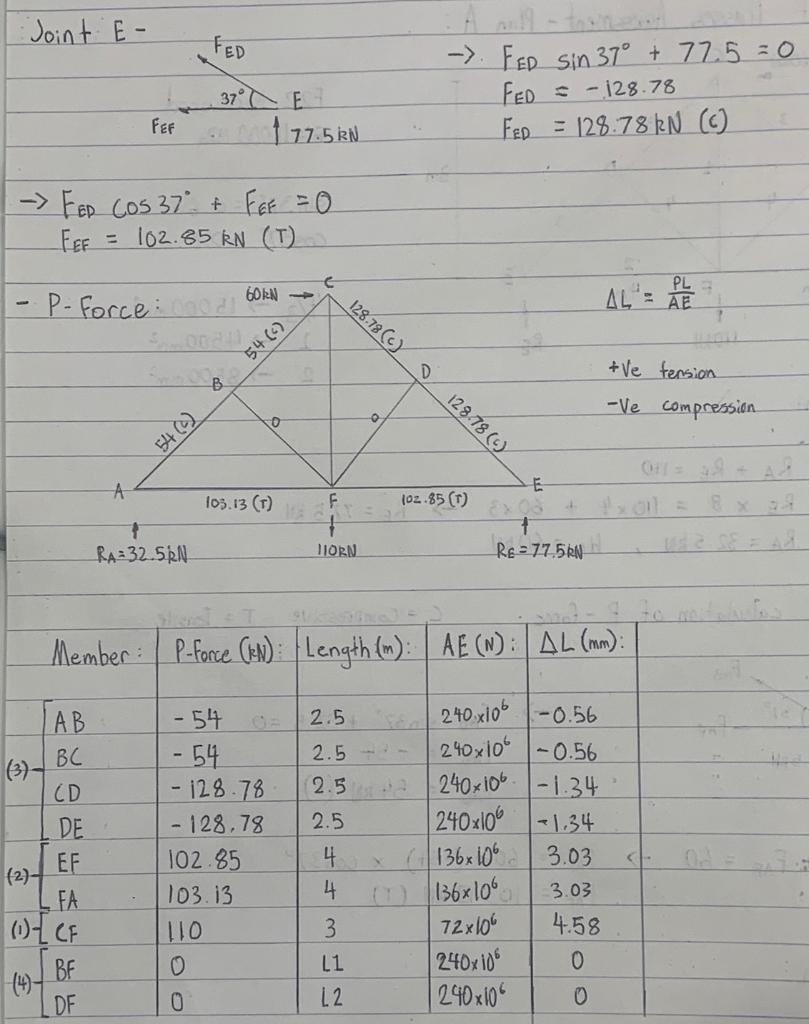 Joint E -
FED
37°
E
FEF
77.5kN
-> FED sin 37° + 77.5 = 0
FED = -128.78
FED = 128.78 kN (C)
-> FED cos 37° + FEF = 0
FEF = 102.85 kN (T)
- P-Force:
60kN
C
54 (C)
128.78 (C)
B
D
0
0
54 (C)
128.78 (C)
A
103.13 (T)
F
102.85 (T)
E
RA = 32.5kN
110kN
RE = 77.5kN
ΔL = PL/AE
+Ve tension
-Ve compression
Member: P-Force (kN): Length (m): AE (N): ΔL (mm):
AB -54 2.5 240x10⁶ -0.56
BC -54 2.5 240x10⁶ -0.56
(3)- CD -128.78 2.5 240x10⁶ -1.34
DE -128.78 2.5 240x10⁶ -1.34
(2)- EF 102.85 4 136x10⁶ 3.03
FA 103.13 4 136x10⁶ 3.03
(1)- CF 110 3 72x10⁶ 4.58
(4)- BF 0 L1 240x10⁶ 0
DF 0 L2 240x10⁶ 0